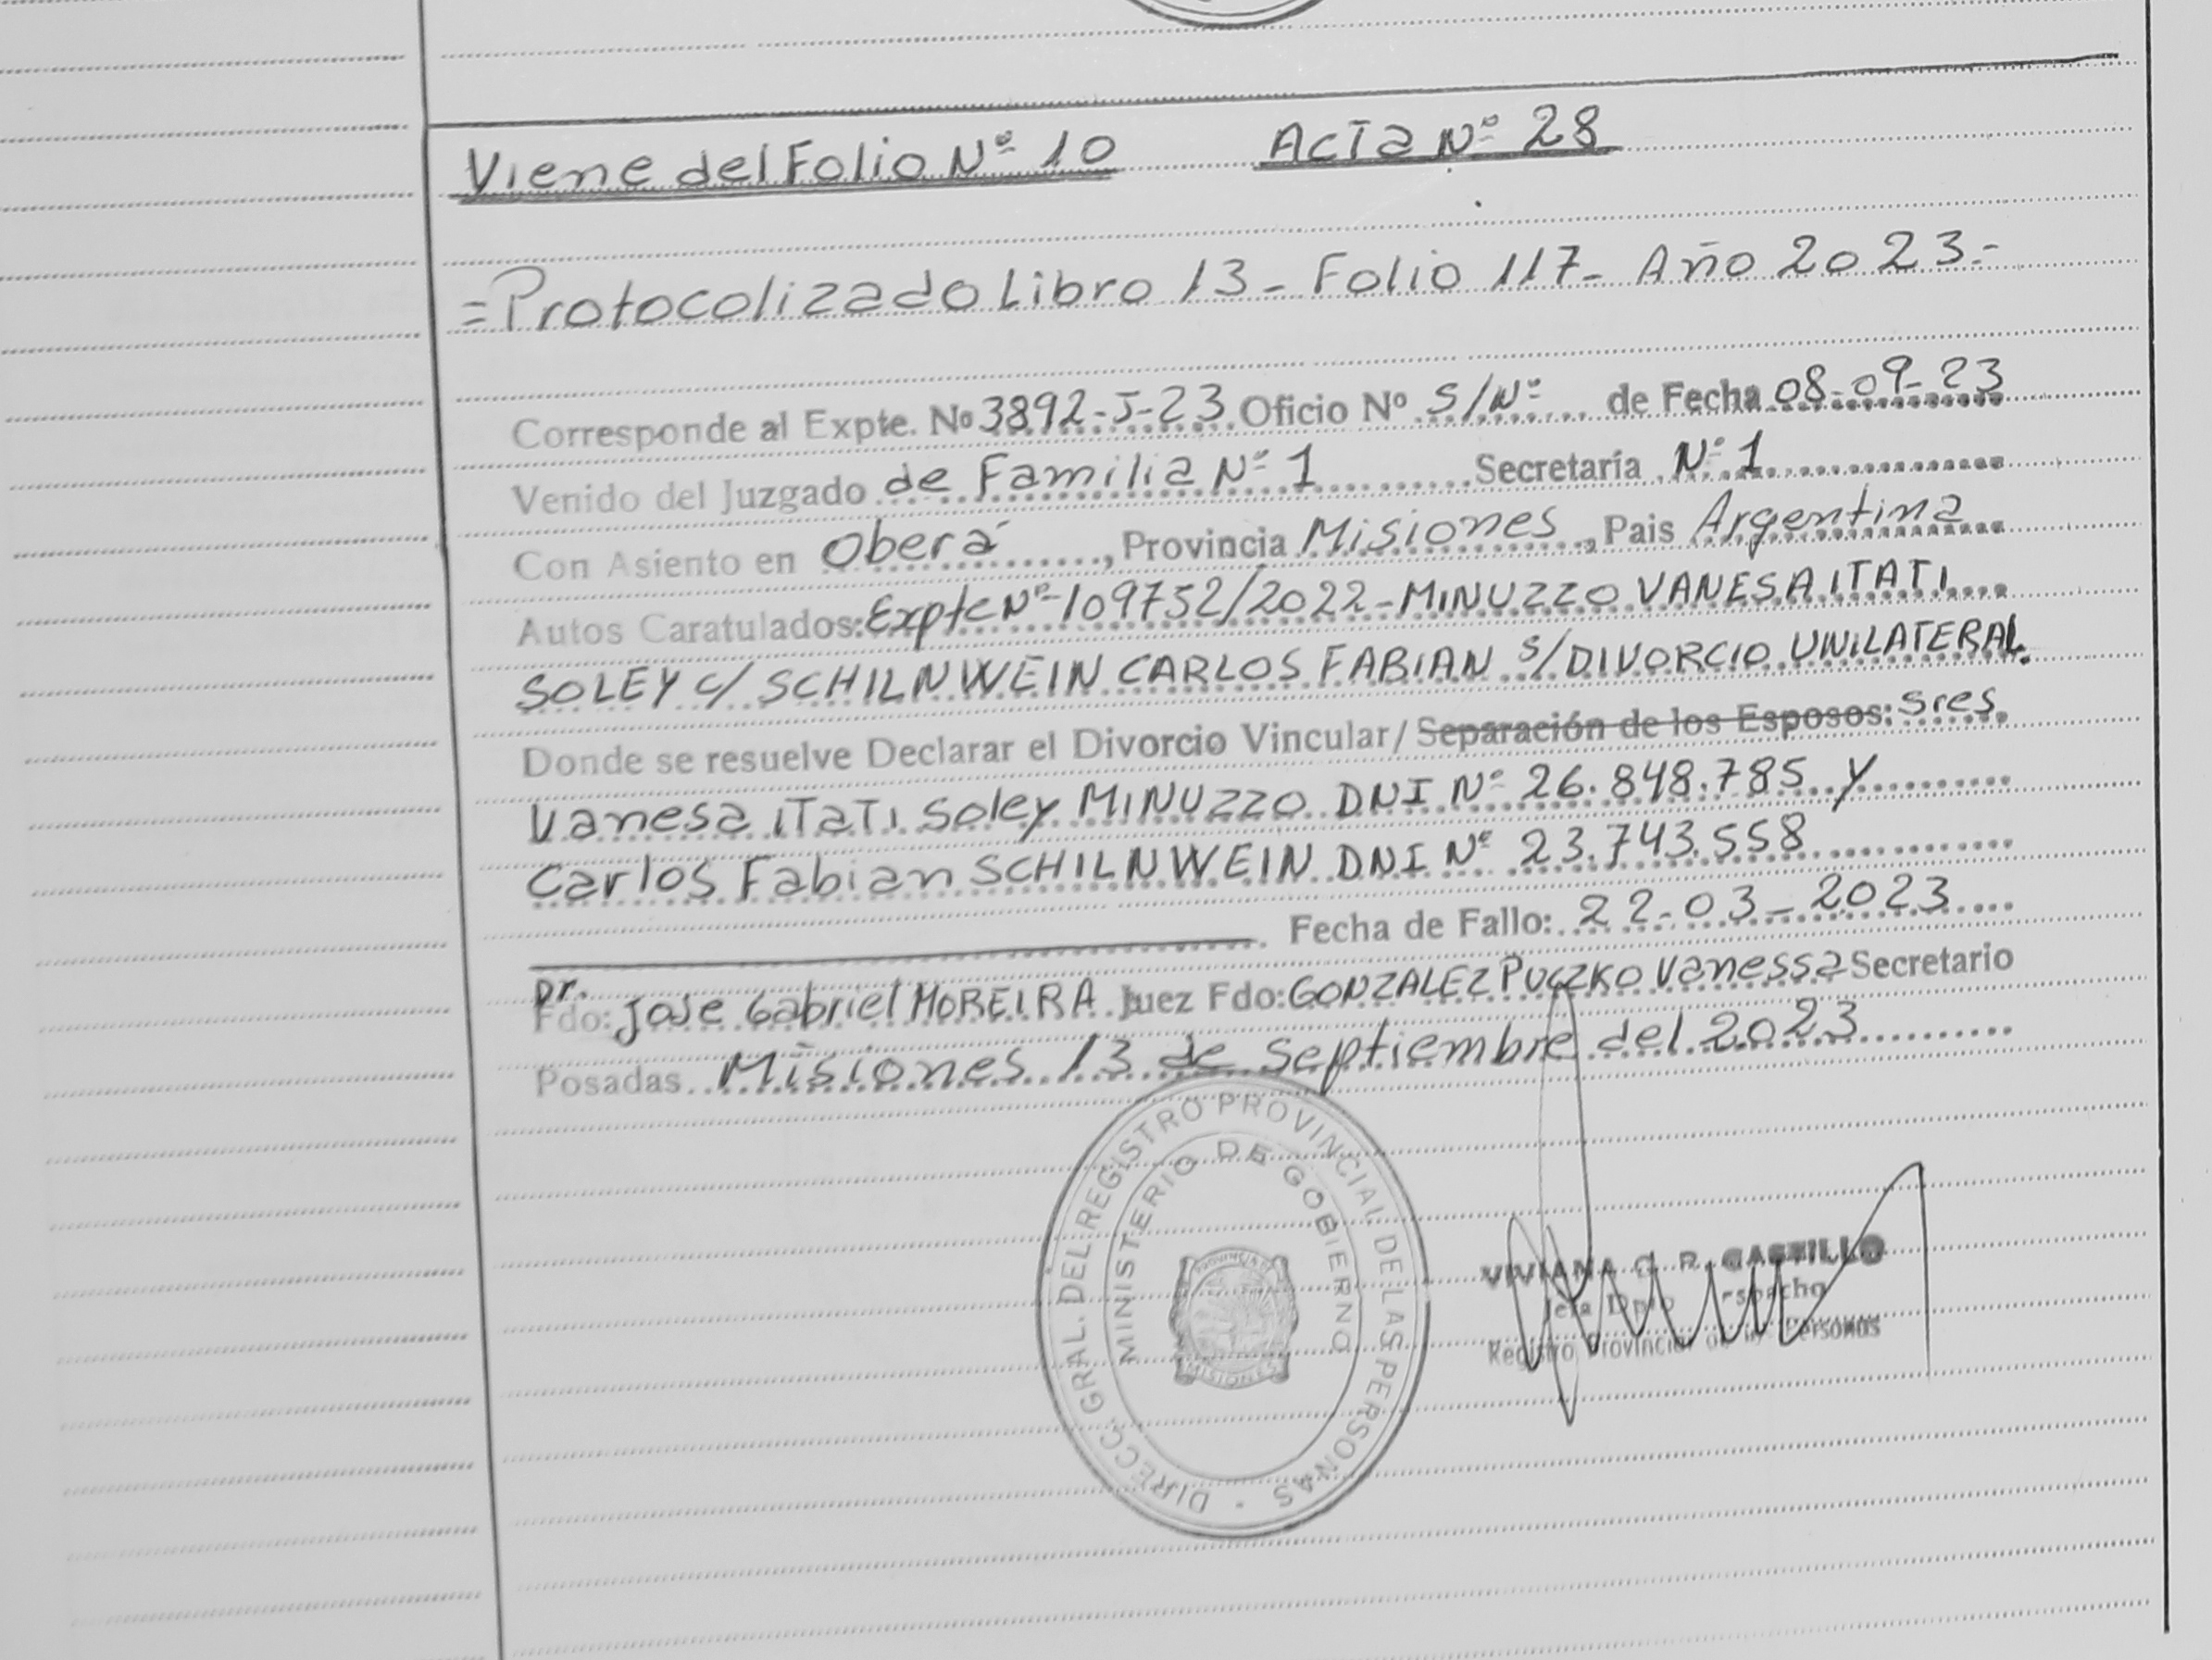 Viene del Folio Nº 10 Acta Nº 28
=Protocolizado Libro 13- Folio 117- Año 2023.=
Corresponde al Expte. No 3892-J-23 Oficio Nº S/Nº de Fecha 08-09-23
Venido del Juzgado de Familia Nº 1 Secretaría Nº 1
Con Asiento en Oberá, Provincia Misiones, Pais Argentina
Autos Caratulados: Expte Nº 109752/2022-MINUZZO VANESA ITATI
SOLEY C/ SCHILNWEIN CARLOS FABIAN S/DIVORCIO UNILATERAL.
Donde se resuelve Declarar el Divorcio Vincular/ Separación de los Esposos: Sres.
Vanesa ITATI Soley MINUZZO DNI Nº 26.848.785 y
Carlos Fabian SCHILNWEIN DNI Nº 23.743.558
Fecha de Fallo: 22-03-2023
Dr.
Fdo: Jose Gabriel MOREIRA Juez Fdo: GONZALEZ PUCZKO Vanessa Secretario
Posadas Misiones 13 de Septiembre del 2023
DIRECC. GRAL. DEL REGISTRO PROVINCIAL DE LAS PERSONAS
MINISTERIO DE GOBIERNO
PROVINCIA
MISIONES
VIVIANA G. R. CASTILLO
Jefa Dpto
Registro Provincial de las Personas